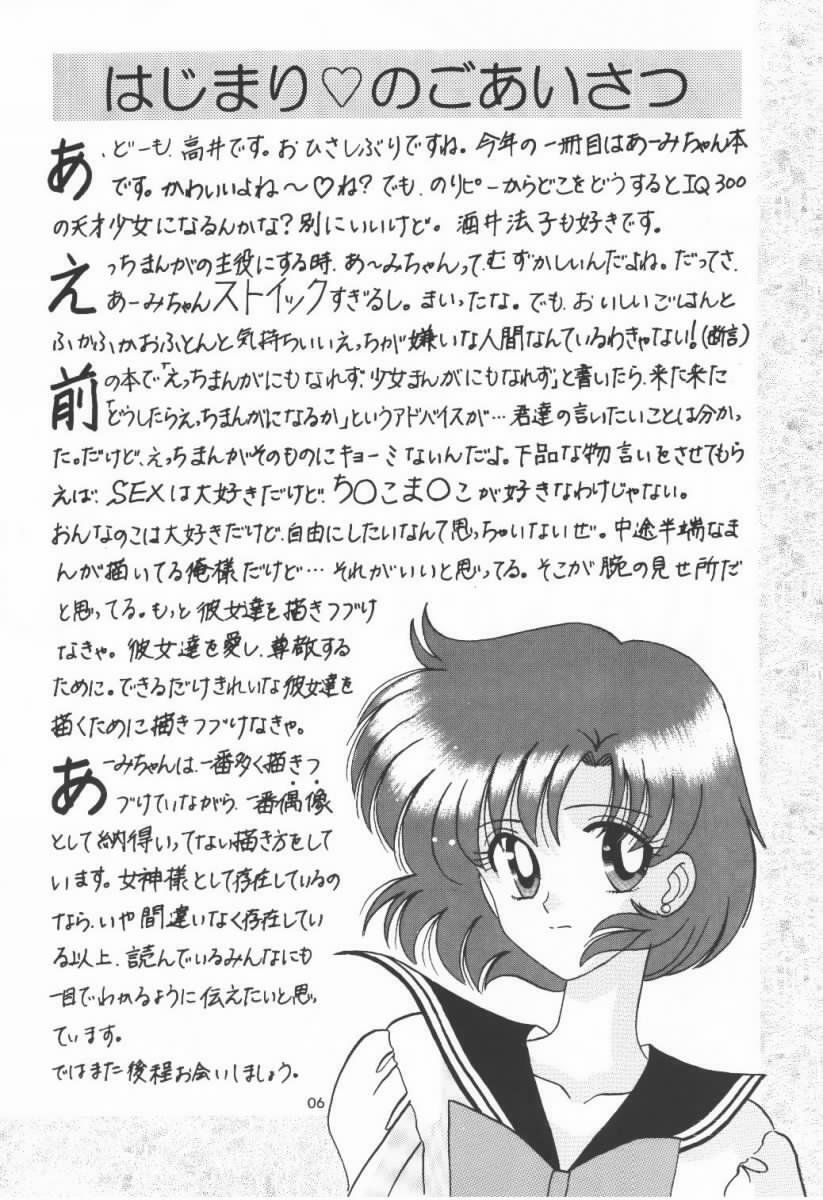 はじまり♡のごあいさつ
あ、どーも、高井です。おひさしぶりですね。今年の一冊目はあーみちゃん本
です。かわいいよね〜♡ね？でも、のりピーからどこをどうするとIQ300
の天才少女になるんかな？別にいいけど。酒井法子も好きです。
えっちまんがの主役にする時、あ〜みちゃんって、むずかしいんだよね。だってさ、
あーみちゃんストイックすぎるし。まいったな。でも、おいしいごはんと
ふかふかおふとんと気持ちいいえっちが嫌いな人間なんているわきゃない！(断言)
前の本で「えっちまんがにもなれず、少女まんがにもなれず」と書いたら、来た来た
「どうしたらえっちまんがになるか」というアドバイスが…君達の言いたいことは分かっ
た。だけど、えっちまんがそのものにキョーミないんだよ。下品な物言いをさせてもら
えば、SEXは大好きだけど、ち〇こま〇こが好きなわけじゃない。
おんなのこは大好きだけど、自由にしたいなんて思っちゃいないぜ。中途半端なま
んが描いてる俺様だけど…それがいいと思ってる。そこが腕の見せ所だ
と思ってる。もっと彼女達を描きつづけ
なきゃ。彼女達を愛し、尊敬する
ために。できるだけきれいな彼女達を
描くために描きつづけなきゃ。
あーみちゃんは、一番多く描きつ
づけていながら、一番偶像
として納得いってない描き方をして
います。女神様として存在しているの
なら、いや間違いなく存在してい
る以上、読んでいるみんなにも
一目でわかるように伝えたいと思っ
ています。
ではまた後程お会いしましょう。
06